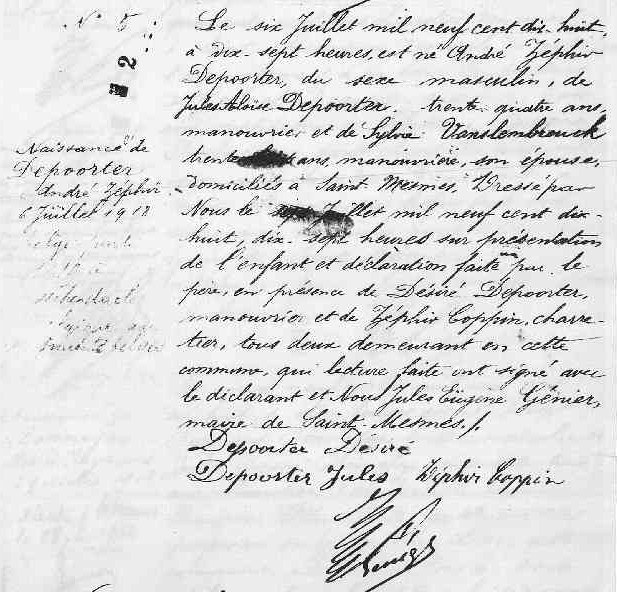 N° 5
2
Naissance de
Depoorter
André Zéphir
6 Juillet 1918
Le six Juillet mil neuf cent dix-huit,
à dix-sept heures, est né André Zéphir
Depoorter, du sexe masculin, de
Jules Aloïse Depoorter, trente-quatre ans,
manouvrier et de Sylvie Vanslembrouck
trente ans, manouvrière, son épouse,
domiciliés à Saint-Mesmes. Dressé par
Nous le Juillet mil neuf cent dix-
huit, dix-sept heures sur présentation
de l'enfant et déclaration faite par le
père, en présence de Désiré Depoorter,
manouvrier et de Zéphir Coppin, charre-
tier, tous deux demeurant en cette
commune, qui lecture faite ont signé avec
le déclarant et Nous Jules Eugène Génier,
maire de Saint-Mesmes./.
Depoorter Désiré
Depoorter Jules Zéphir Coppin